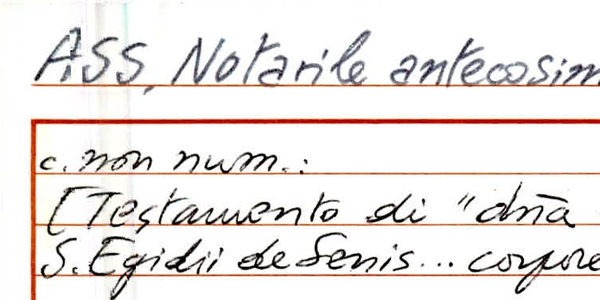 ASS, Notarile antecosim
c. non num.:
[Testamento di "dña
S. Egidii de Senis... corpore